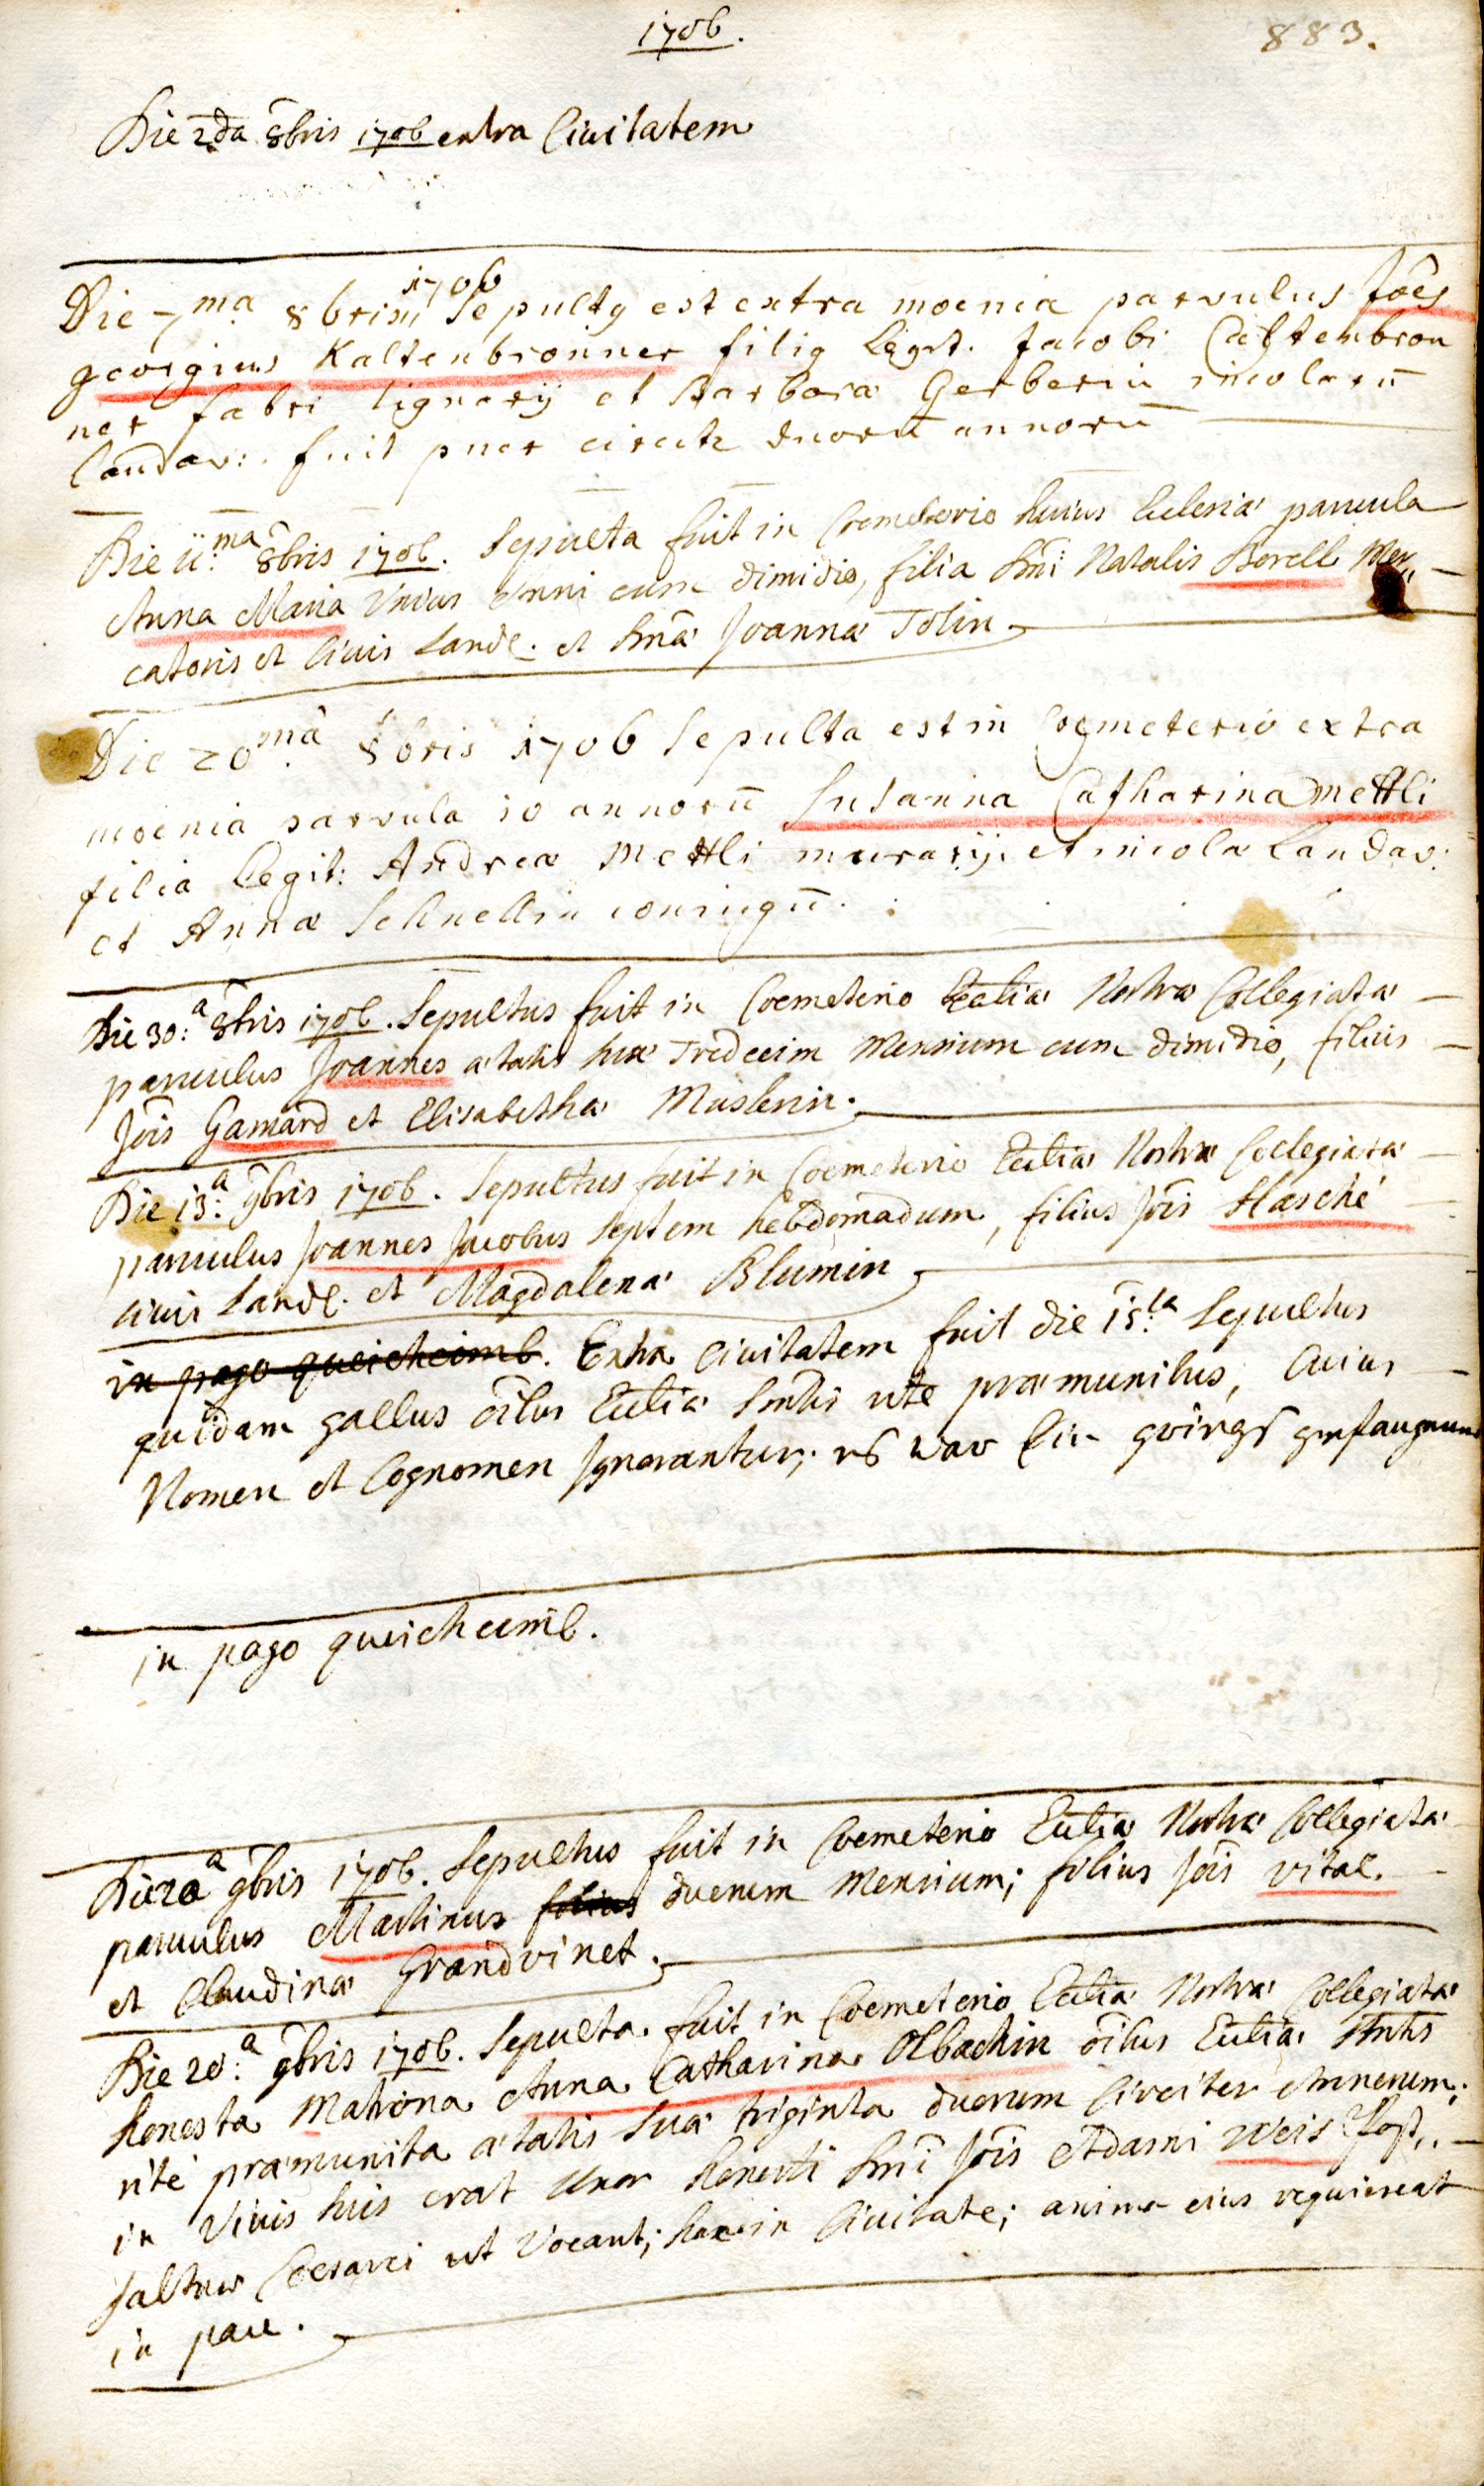 1706.
883.
Die 2da 8bris 1706 extra Civitatem
Die 7ma 8bris 1706 Sepultq est extra moenia parvulus Joês
georgius Kaltenbronner filiq Legit. Jacobi Caltenbron
ner fabri lignarij et Barbara Gerberin incolarū
Landav: fuit puer circitr duorū annorū
Die 11.ma 8bris 1706. Sepulta fuit in Coemeterio huius Eclesiæ parvula
Anna Maria Unius Anni cum dimidio, filia Dni Natalis Borell Mer„
catoris et Civis Landl. et Dnæ Joannæ Tolin
Die 20.ma 8bris 1706 Sepulta est in Coemeterio extra
moenia parvula 10 annorū Susanna Catharina Mettli
filia Legit: Andreæ Mettli murarij et incolæ Landav:
et Annæ Schnellin coniugū.
Die 30.a 8bris 1706. Sepultus fuit in Coemeterio Ecctiæ Nostræ Collegiatæ
parvulus Joannes ætatis suæ Tredecim Mensium cum dimidio, filius
Jois Gamard et Elisabethæ Muslerin.
Die 13.a 9bris 1706. Sepultus fuit in Coemeterio Ecctiæ Nostræ Collegiatæ
parvulus Joannes Jacobus Septem hebdomadum, filius Jois Hasché
Civis Landl. et Magdalenæ Blumin
in pago queicheimb. Extra Civitatem fuit die 15.ta Sepultus
quidam gallus oibus Ecctiæ Smtis rite præmunitus, Cuius
Nomen et Cognomen Ignorantur; es war Ein gfangnmn
in pago queicheimb.
Die 20a 9bris 1706. Sepultus fuit in Coemeterio Ecctiæ Nostræ Collegiatæ
parvulus Martinus filius duorum Mensium; filius Jois vital.
et Claudinæ Grandvinet.
Die 20.a 9bris 1706. Sepulta fuit in Coemeterio Ecctiæ Nostræ Collegiatæ
honesta Matrona Anna Catharina Olbachin oibus Ecctiæ Smtis
rite præmunita ætatis Suæ triginta duorum Circiter Annorum;
in Vivis suis erat Uxor honesti Dni Jois Adami Weis Post„
haltner Cæsarei ut Vocant; hac in Civitate; anima eius requiescat
in pace.